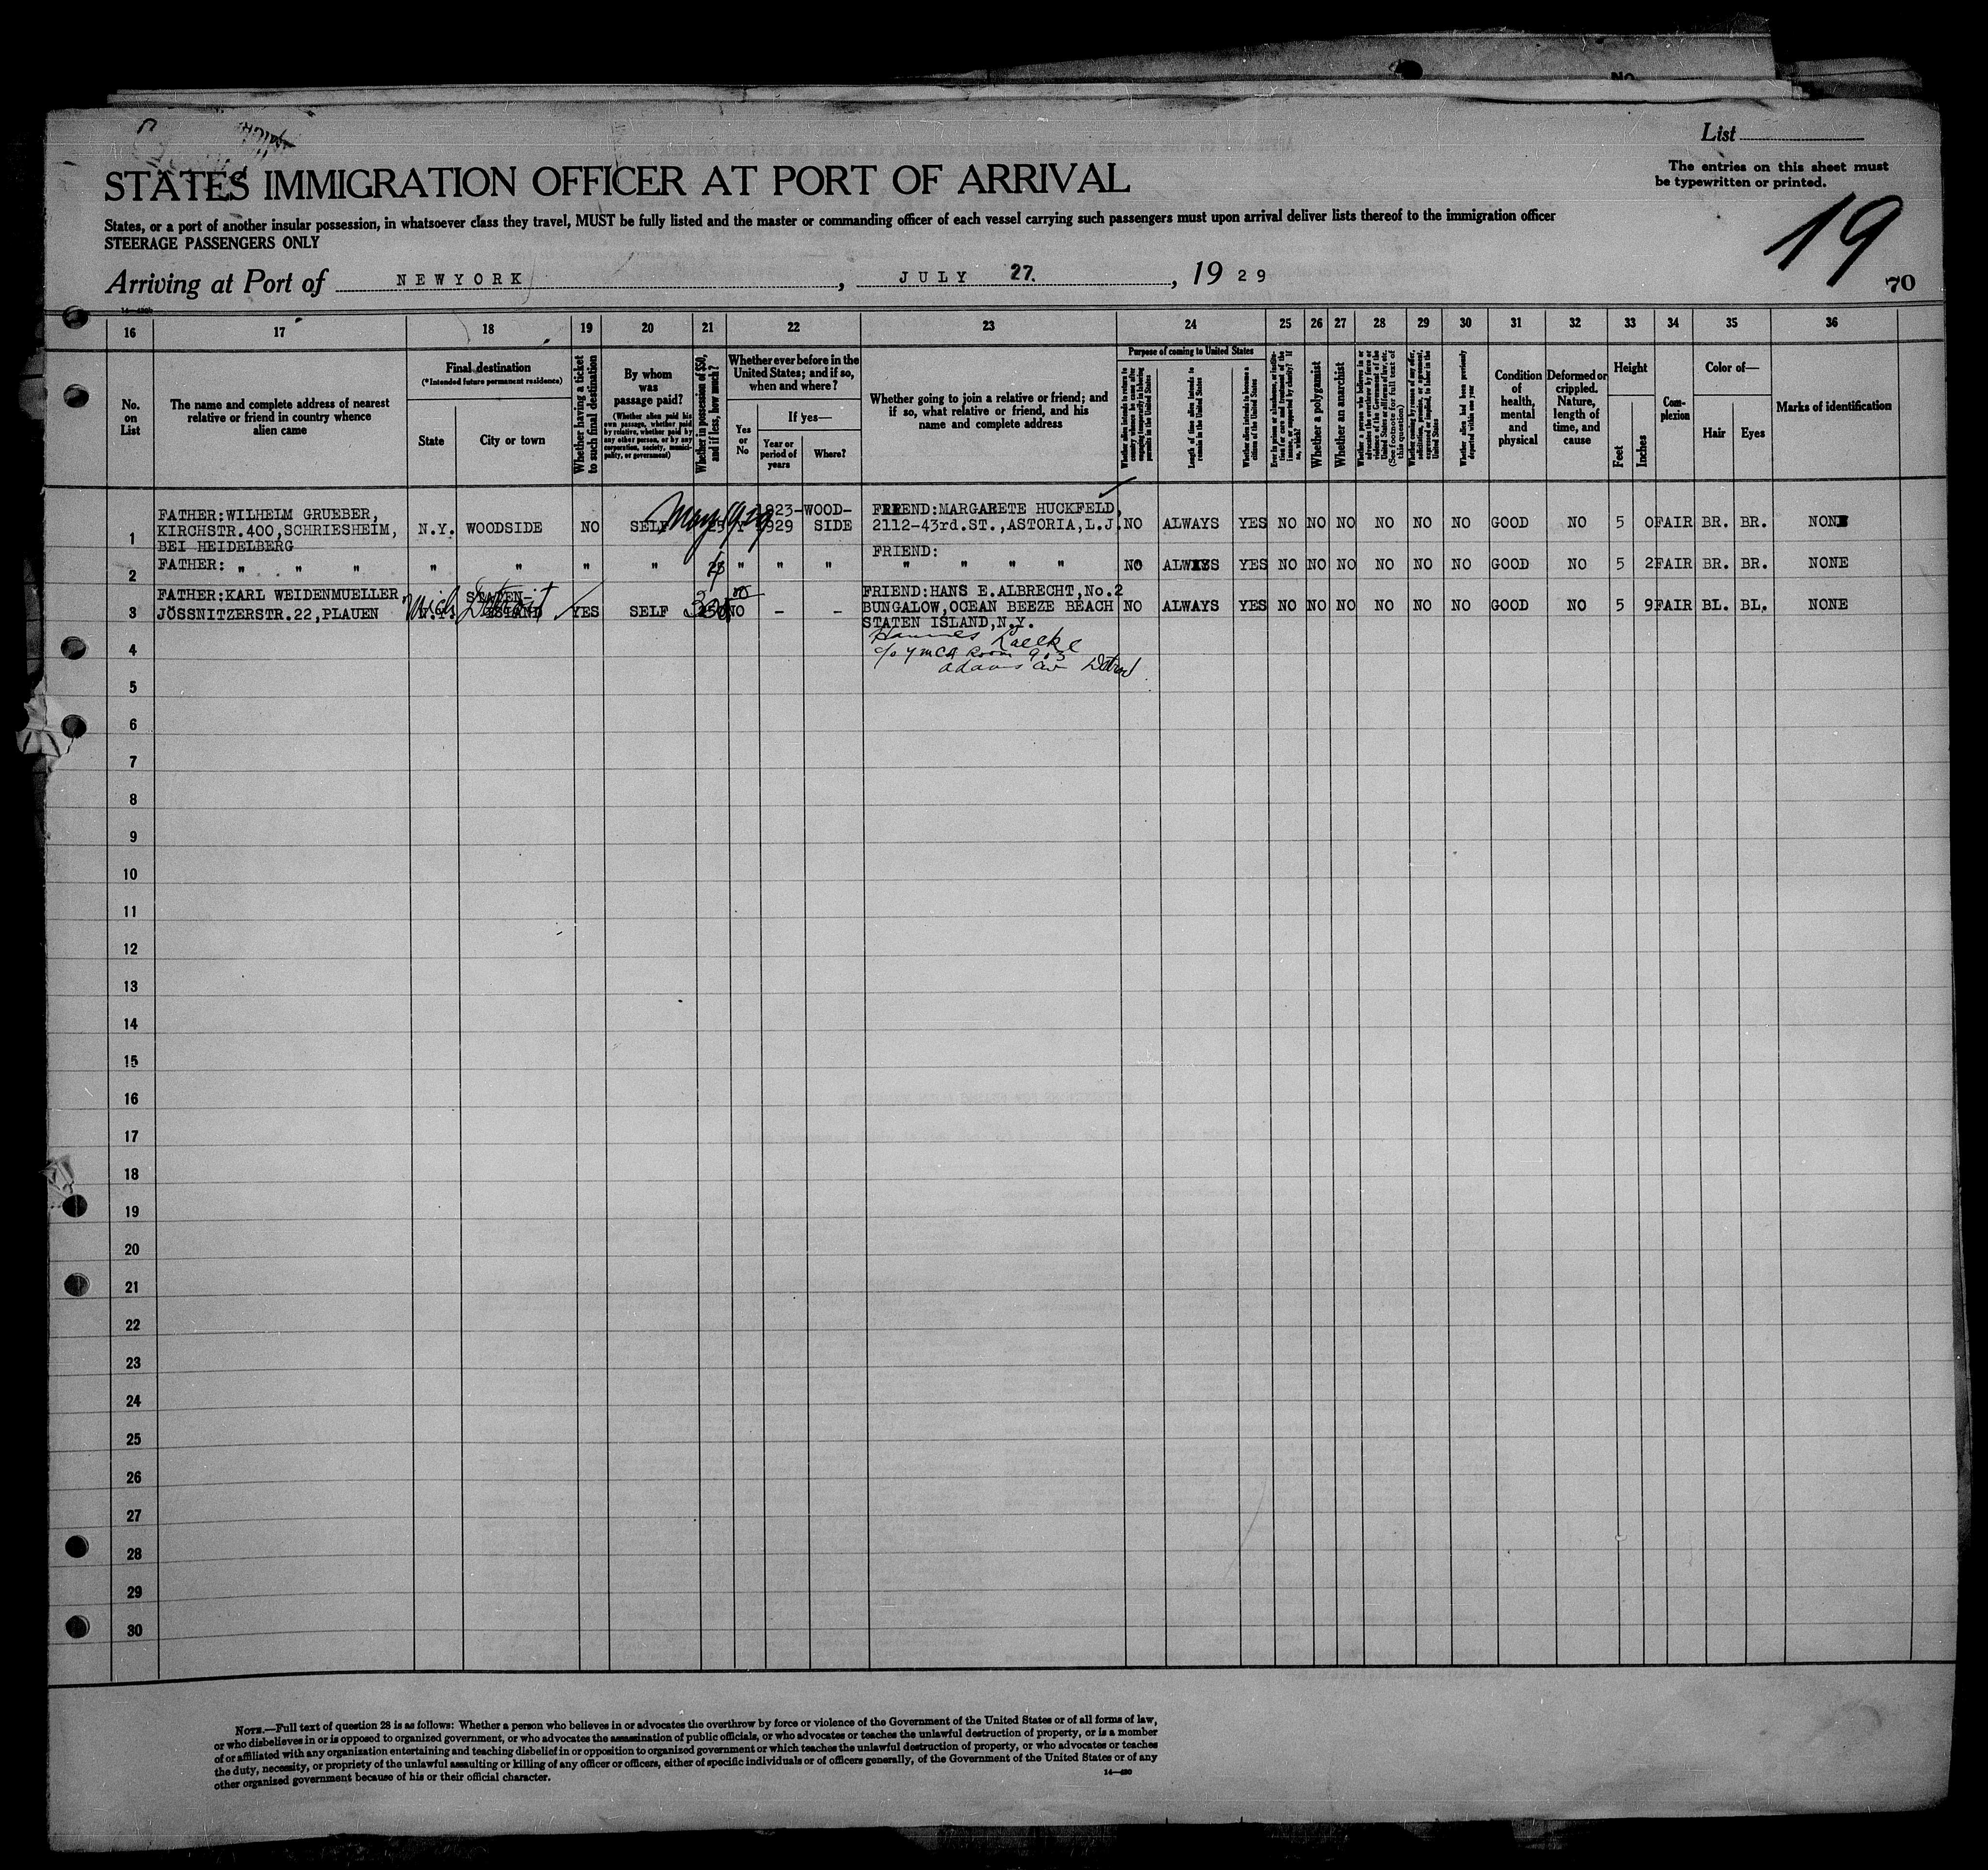 No
List
The entries on this sheet must
be typewritten or printed.
STATES IMMIGRATION OFFICER AT PORT OF ARRIVAL
States, or a port of another insular possession, in whatsoever class they travel, MUST be fully listed and the master or commanding officer of each vessel carrying such passengers must upon arrival deliver lists thereof to the immigration officer
STEERAGE PASSENGERS ONLY
19
Arriving at Port of NEWYORK, JULY 27., 1929
70
16 17 18 19 20 21 22 23 24 25 26 27 28 29 30 31 32 33 34 35 36
No.
on
List
The name and complete address of nearest
relative or friend in country whence
alien came
Final destination
(*Intended future permanent residence)
State
City or town
Whether having a ticket
to such final destination
By whom
was
passage paid?
(Whether alien paid his
own passage, whether paid
by relative, whether paid by
any other person, or by any
corporation, society, munici-
pality, or government)
Whether in possession of $50,
and if less, how much?
Whether ever before in the
United States; and if so,
when and where?
Yes
or
No
If yes—
Year or
period of
years
Where?
Whether going to join a relative or friend; and
if so, what relative or friend, and his
name and complete address
Purpose of coming to United States
Length of time alien intends to
remain in the United States
Whether alien intends to become a
citizen of the United States
Whether a polygamist
Whether an anarchist
Whether alien had been previously
deported within one year
Condition
of
health,
mental
and
physical
Deformed or
crippled.
Nature,
length of
time, and
cause
Height
Feet
Inches
Com-
plexion
Color of—
Hair
Eyes
Marks of identification
1
FATHER:WILHEIM GRUEBER,
KIRCHSTR.400,SCHRIESHEIM,
BEI HEIDELBERG
N.Y. WOODSIDE NO SELF 25
May 1929
1923- WOOD-
1929 SIDE
FRIEND:MARGARETE HUCKFELD,
2112-43rd.ST.,ASTORIA,L.J.
NO ALWAYS YES NO NO NO NO NO NO GOOD NO 5 0 FAIR BR. BR. NONE
2
FATHER: " " "
" " " " " " "
FRIEND:
" " " "
NO ALWAYS YES NO NO NO NO NO NO GOOD NO 5 2 FAIR BR. BR. NONE
3
FATHER:KARL WEIDENMUELLER
JÖSSNITZERSTR.22,PLAUEN
N.Y. STATEN-
ISLAND
Mich Detroit
YES SELF NO - -
FRIEND:HANS E.ALBRECHT,No.2
BUNGALOW,OCEAN BEEZE BEACH
STATEN ISLAND,N.Y.
NO ALWAYS YES NO NO NO NO NO NO GOOD NO 5 9 FAIR BL. BL. NONE
4
c/o YMCA Room 903
Adams Av Detroit
5
6
7
8
9
10
11
12
13
14
15
16
17
18
19
20
21
22
23
24
25
26
27
28
29
30
NOTE.—Full text of question 28 is as follows: Whether a person who believes in or advocates the overthrow by force or violence of the Government of the United States or of all forms of law,
or who disbelieves in or is opposed to organized government, or who advocates the assassination of public officials, or who advocates or teaches the unlawful destruction of property, or is a member
of or affiliated with any organization entertaining and teaching disbelief in or opposition to organized government or which teaches the unlawful destruction of property, or who advocates or teaches
the duty, necessity, or propriety of the unlawful assaulting or killing of any officer or officers, either of specific individuals or of officers generally, of the Government of the United States or of any
other organized government because of his or their official character.
14—480